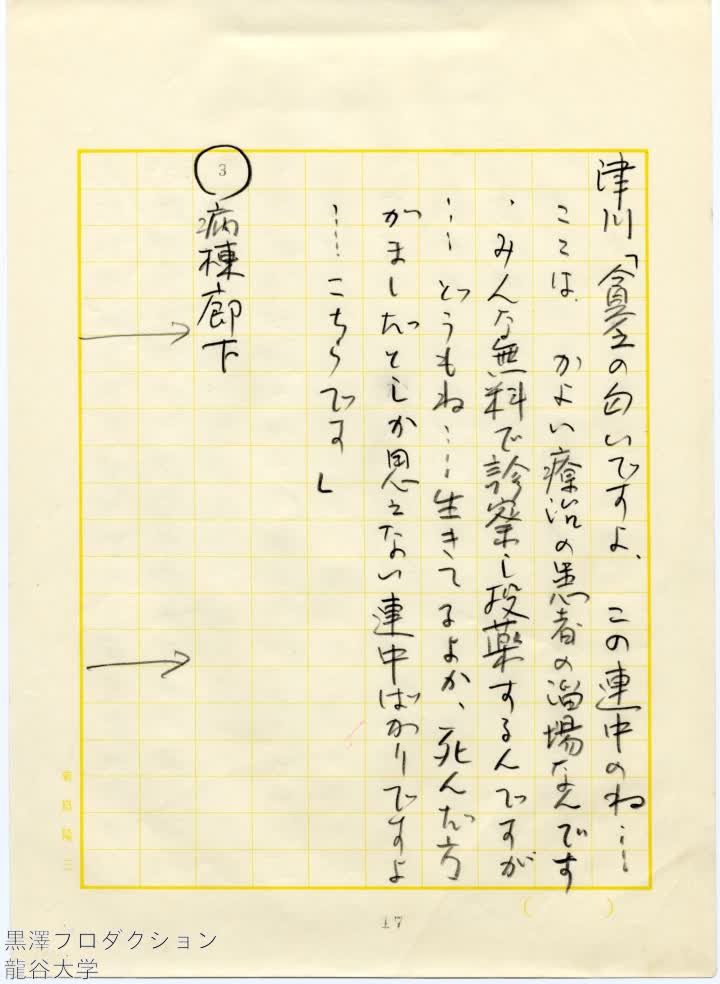 津川「貧乏の匂いですよ、この連中のね……
ここは、かよい療治の患者の溜場なんです
、みんな無料で診察し投薬するんですが
……どうもね……生きてるよか、死んだ方
がましだとしか思えない連中ばかりですよ
……こちらです」
3
病棟廊下
17
黒澤プロダクション
龍谷大学